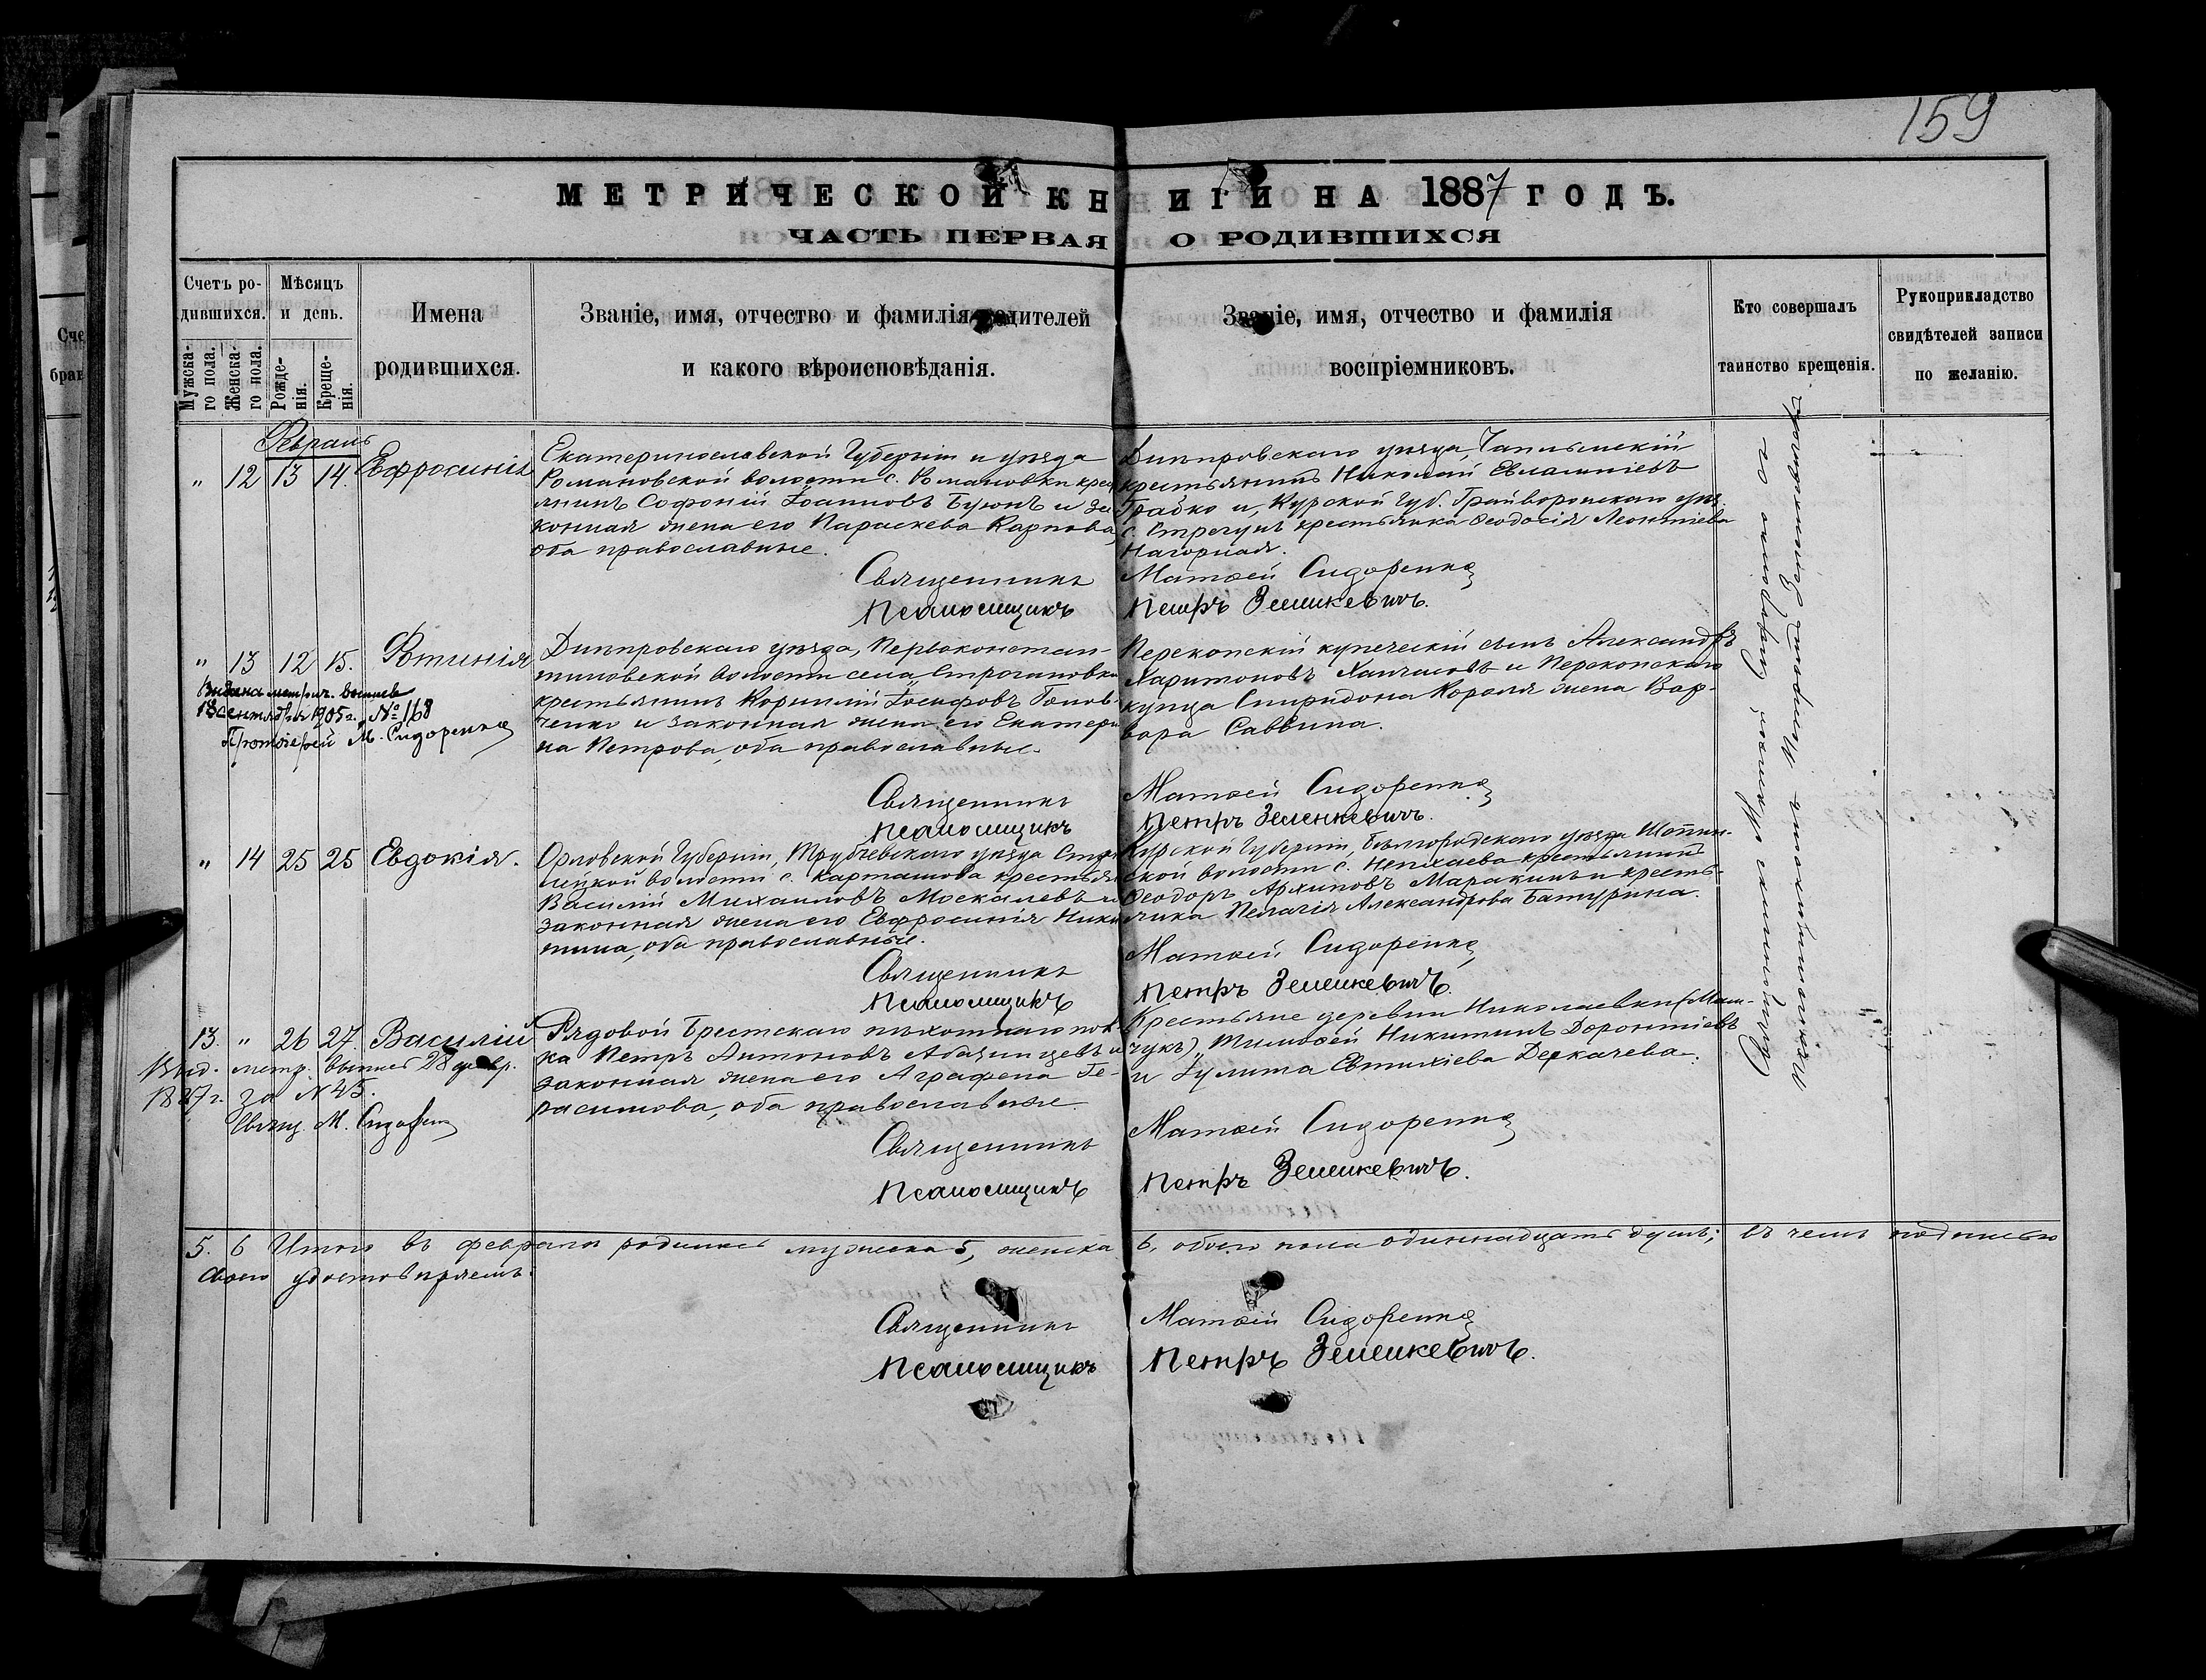 159
МЕТРИЧЕСКОЙ КНИГИ НА 1887 ГОДЪ.
ЧАСТЬ ПЕРВАЯ О РОДИВШИХСЯ
Счетъ ро-
дившихся.
Мужска-
го пола.
Женска-
го пола.
Мѣсяцъ
и день.
Рожде-
нія.
Креще-
нія.
Имена
родившихся.
Званіе, имя, отчество и фамилія родителей
и какого вѣроисповѣданія.
Званіе, имя, отчество и фамилія
воспріемниковъ.
Кто совершалъ
таинство крещенія.
Рукоприкладство
свидѣтелей записи
по желанію.
Февраль
" 12 13 14. Ефросинія
Екатеринославской Губерніи и уѣзда
Романовской волости с. Романовки крес
янинъ Софоній Іоанновъ Буюнъ и за
конная жена его Параскева Карпова,
оба православные.
Днѣпровскаго уѣзда, Чаплынскій
крестьянинъ Николай Евлампіевъ
Грабко и, Курской Губ. Грайворонскаго уѣз.
с. Стрегунъ крестьянка Ѳеодосія Леонтіева
Нагорная.
Священникъ Матѳей Сидоренко
Псаломщикъ Петръ Зеленкевичъ.
" 13 12 15. Фотинія
Выдана метрич. выпись
13 сентября 1905 г. № 168
Протоіерей М. Сидоренко
Днѣпровскаго уѣзда, Первоконстан-
тиновской волости села, Строгановки
крестьянинъ Корнилій Іосифовъ
ченко и законная жена его Екатери
на Петрова, оба православные.
Перекопскій купеческій сынъ Александръ
Харитоновъ и Перекопскаго
купца Спиридона Короля жена Вар-
вара Саввина.
Священникъ Матѳей Сидоренко
Псаломщикъ Петръ Зеленкевичъ.
" 14 25 25 Евдокія.
Орловской Губерніи, Трубчевскаго уѣзда
лецкой волости с. Карташова крестьян
Василій Михаиловъ Москалевъ и
законная жена его Евфросинія Ники
тина, оба православные.
Курской Губерніи, Бѣлгородскаго уѣзда Шопин-
ской волости с. Непхаева крестьянинъ
Ѳеодоръ Архиповъ Маракинъ и кресть-
янка Пелагія Александрова Батурина.
Священникъ Матѳей Сидоренко
Псаломщикъ Петръ Зеленкевичъ.
13. " 26 27 Василій
Выд. метр. выпись 28 февр.
1887 г. за N 45.
Свящ. М. Сидоренко
Рядовой Брестскаго пѣхотнаго пол-
ка Петръ Антоновъ Абазинцевъ и
законная жена его Аграфена Ге-
расимова, оба православные.
Крестьяне деревни Николаевки (Мам-
чукъ), Тимоѳей Никитинъ Доронтіевъ
и Іулита Евтихіева Деркачева.
Священникъ Матѳей Сидоренко
Псаломщикъ Петръ Зеленкевичъ.
Священникъ Матѳей Сидоренко
съ псаломщикомъ Петромъ Зеленкевичемъ
5. 6 Итого въ февралѣ родилось мужеска 5, женска 6, обоего пола одиннадцать душъ; въ чемъ подписью
своею удостовѣряемъ:
Священникъ Матѳей Сидоренко
Псаломщикъ Петръ Зеленкевичъ.